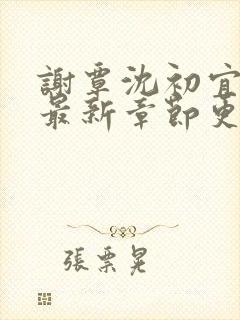 謝覃沈初宜
最新章節更
張票晃